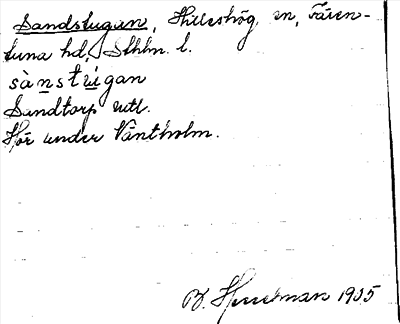 Sandstugan, Hilleshög sn, Fären-
tuna hd, Sthlm l.
sànstùgan
Sandtorp utt.
Hör under Väntholm.
B. Hesselman 1935